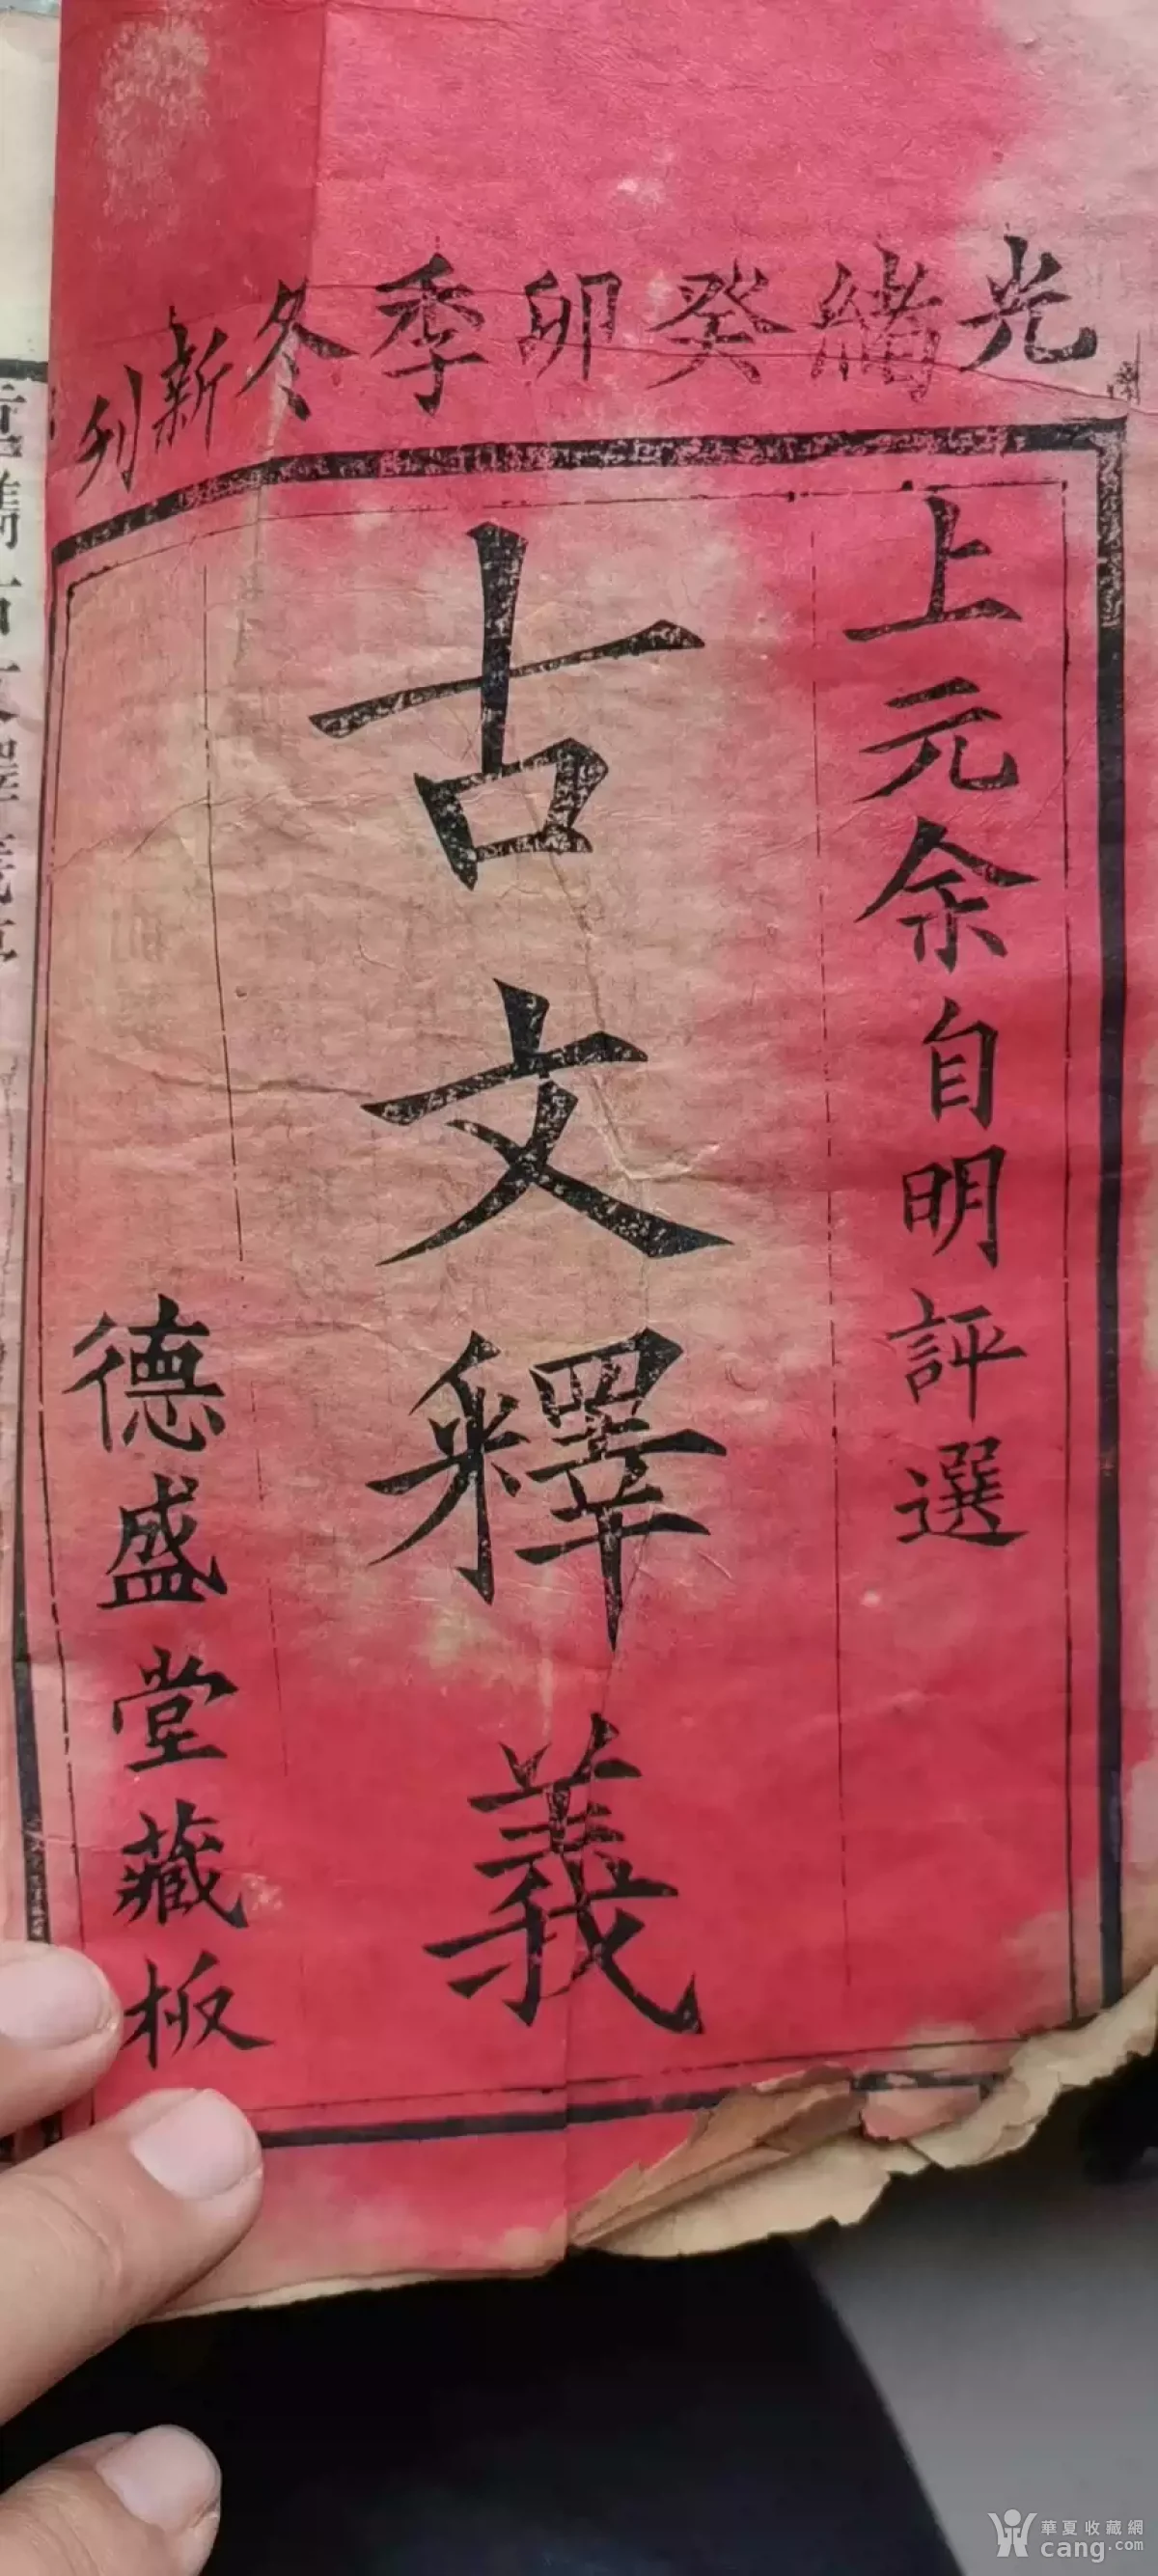 光緒癸卯季冬新刊
上元余自明評選
古文釋義
德盛堂藏板
古文釋義
華夏收藏網
cang.com